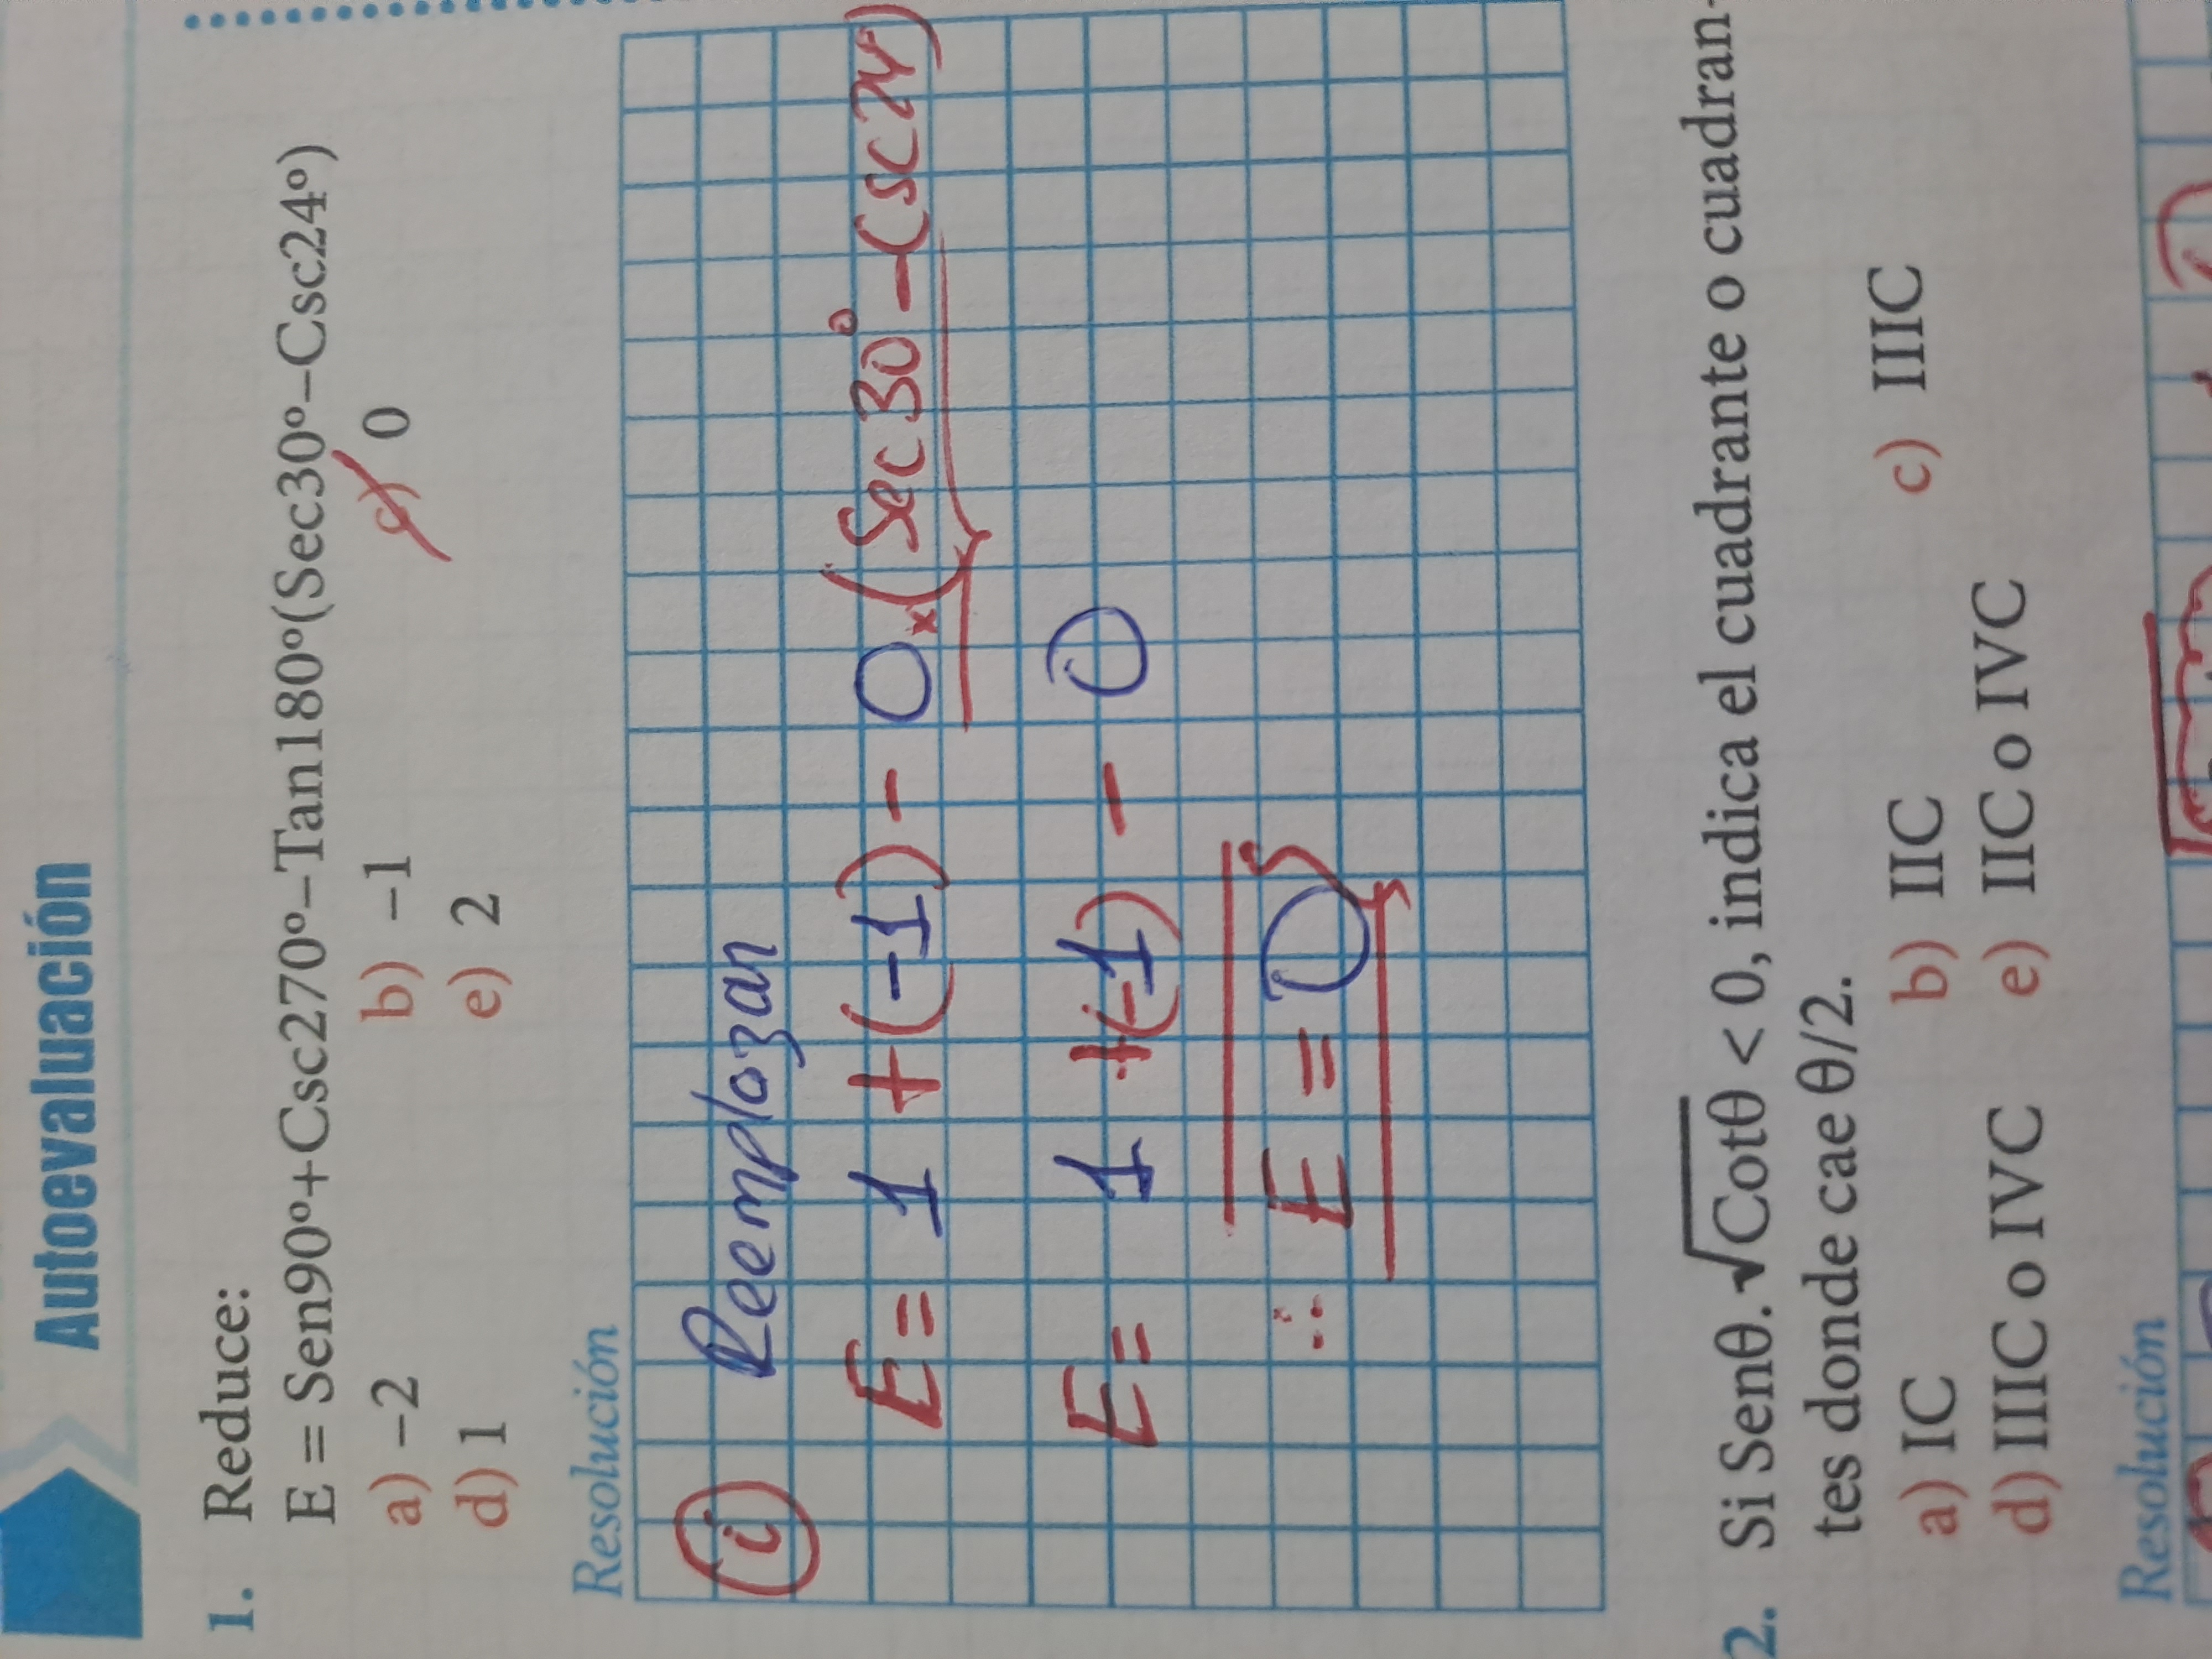 Autoevaluación
1. Reduce:
E = Sen90º+Csc270º–Tan180º(Sec30º–Csc24º)
a) –2 b) –1 c) 0
d) 1 e) 2
Resolución
i Reemplazar
E = 1 +(-1) - 0x(Sec 30° - Csc 24°)
E = 1 +(-1) - 0
∴ E = 0
2. Si Senθ.√Cotθ < 0, indica el cuadrante o cuadran-
tes donde cae θ/2.
a) IC b) IIC c) IIIC
d) IIIC o IVC e) IIC o IVC
Resolución